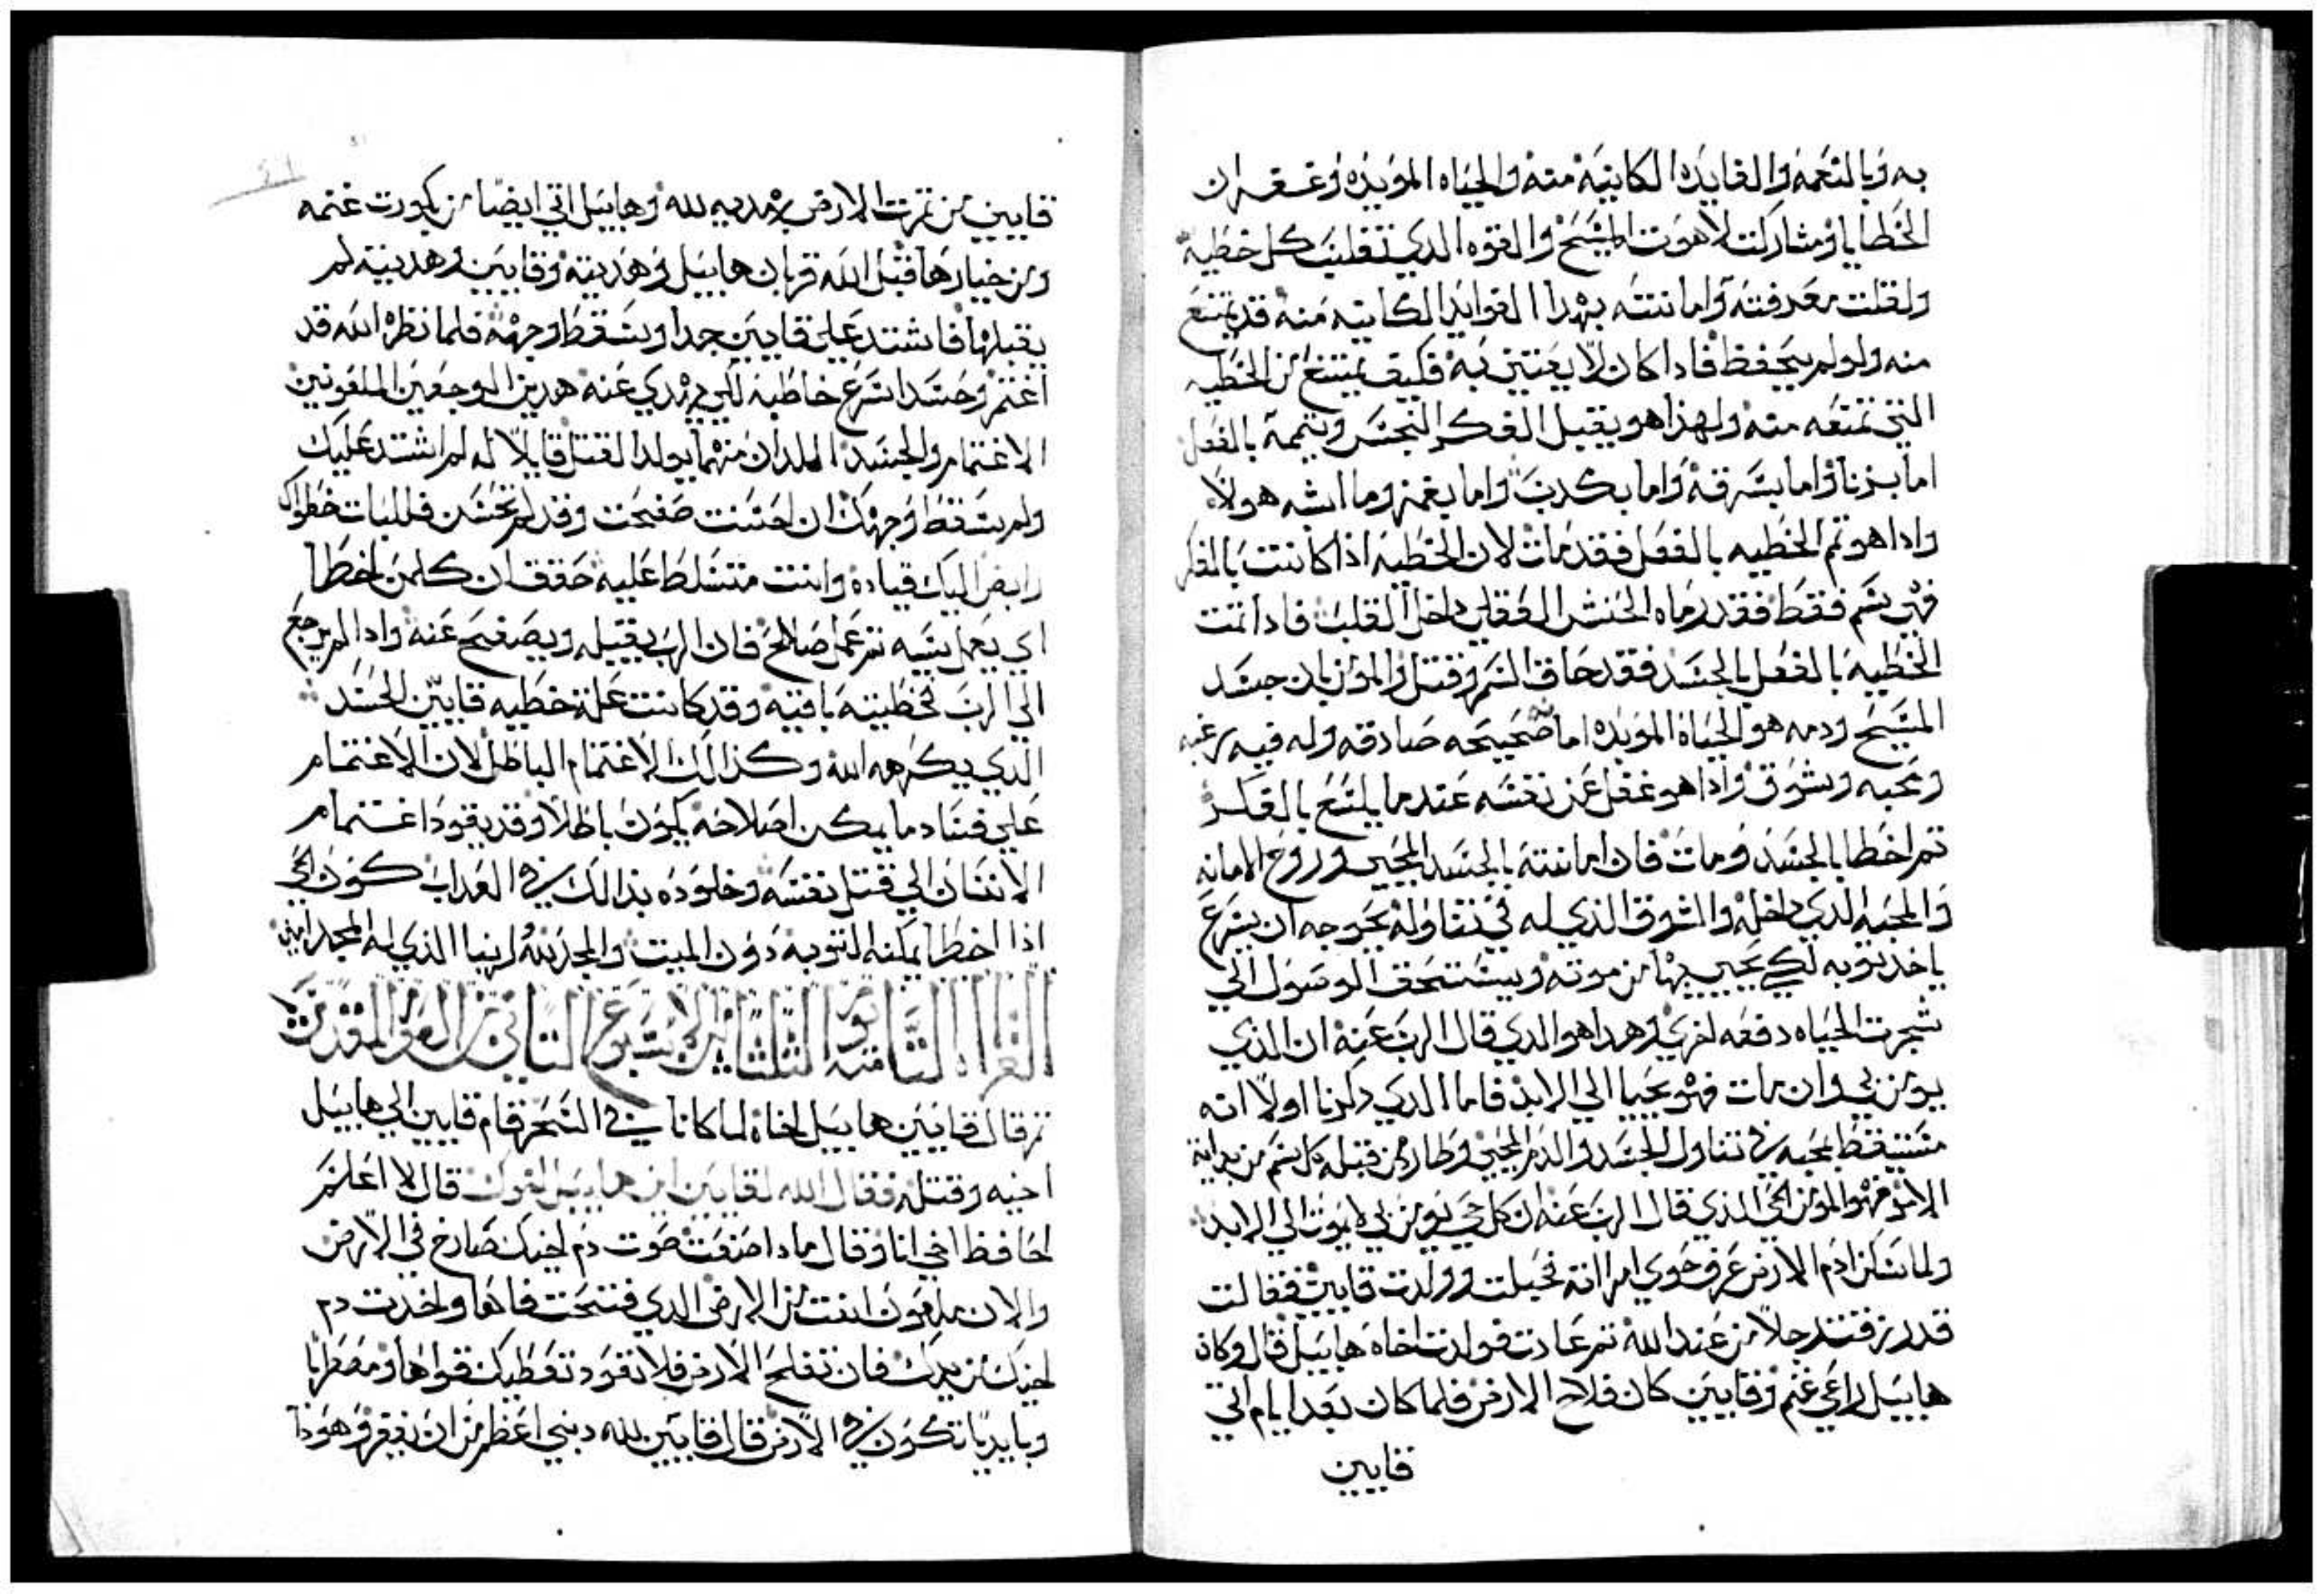 به وبالنعمه والفايده الكاينه منه والحياه المؤبده وغفران
الخطايا ومشاركت لاهوت المسيح والقوه الذي تغلب كل خطيه
ولقلت معرفته وامانته بهدا الفوايد الكاينه منه قد يمتنع
منه ولو لم يتحفظ فادا كان لا يعتني به فكيف يمتنع من الخطيه
التي تمنعه منه ولهذا هو يقبل الفكر النجس ويتممه بالفعل
اما بزنا واما بسرقه واما بكدب واما بغمز وما اشبه هولاء
وادا هو تم الخطيه بالفعل فقد مات لان الخطيه اذا كانت بالفكر
فهي سم فقط فقد رماه الحنش العقلي داخل القلب فادا تمت
الخطيه بالفعل بالجسد فقد حاق السم وقتل والمؤمن بان جسد
المسيح ودمه هو الحياه المؤبده امانه صحيحه صادقه وله فيه رغبه
ومحبه وشوق وادا هو غفل عن نفسه عندما يلسع بالفكر
تم اخطا بالجسد ومات فان امانته بالجسد المحيي وروح الامانه
والمحبه الدي داخله والشوق الذي له في تناوله يحوجه ان يسرع
ياخد توبه لكي يحيي بها من موته ويستحق الوصول الي
شجرت الحياه دفعه اخري وهدا هو الدي قال الرب عنه ان الذي
يومن بي وان مات فهو يحيا الي الابد فاما الدي دكرنا اولا انه
متيقظ بمحبه في تناول الجسد والدم المحيي وطارد من قبله كل سم من بداية
الامر فهو المؤمن الحي الذي قال الرب عنه ان كل حي يومن بي لا يموت الي الابد
ولما سكن ادم الارض عرف حوي امراته فحبلت وولدت قايين فقالت
قد رزقت رجلا من عند الله تم عادت فولدت اخاه هابيل قال وكان
هابيل راعي غنم وقايين كان فلاح الارض فلما كان بعد ايام اتي
قايين
قايين من تمرت الارض بهديه لله وهابيل اتي ايضا من بكورت غنمه
ومن خيارها فقبل الله قربان هابيل وهديته وقايين وهديته لم
يقبلها فاشتد علي قايين جدا وسقط وجهه فلما نظره الله قد
اغتم وحسد اسرع خاطبه لكي يهدي عنه هدين الوجعين الملعونين
الاغتمام والحسد الملدان منهما يولد القتل قايلا له لم اشتد عليك
ولم سقط وجهك ان احسنت صفحت وقد لم تحسن فللباب خطواك
رابض اليك قياده وانت متسلط عليه حقق ان كلمن اخطا
اي يعمل بشبه تم عمل صالح فان الرب يقبله ويصفح عنه وادا لم يرجع
الي الرب فخطيته باقيه وقد كانت علة خطيه قايين الحسد
الدي يكرهه الله وكذالك الاغتمام الباطل لان الاغتمام
علي فساد ما يمكن اصلاحه يكون باطلا وقد يقود اغتمام
الانسان الي قتل نفسه وخلوده بذالك في العداب كون الحي
اذا اخطا يمكنه التوبه دون الميت والمجد لله الهنا الذي له المجد امين
القراه الثامنه يوم الثلثا من الاسبوع الثاني من الصوم المقدس
تم قال قايين هابيل اخاه لما كانا في الصحر قام قايين الي هابيل
اخيه وقتله فقال الله لقايين اين هابيل اخوك قال لا اعلم
لحافظ اخي انا وقال مادا صنعت صوت دم اخيك صارخ في الارض
والان ملعون انت من الارض الدي فتحت فاها واخدت دم
اخيك من يدك فان تفلح الارض فلا تعود تعطيك قواها ومضطربا
وبايدبا تكون في الارض قال قايين لله دنبي اعظم من ان يغفر وهودا